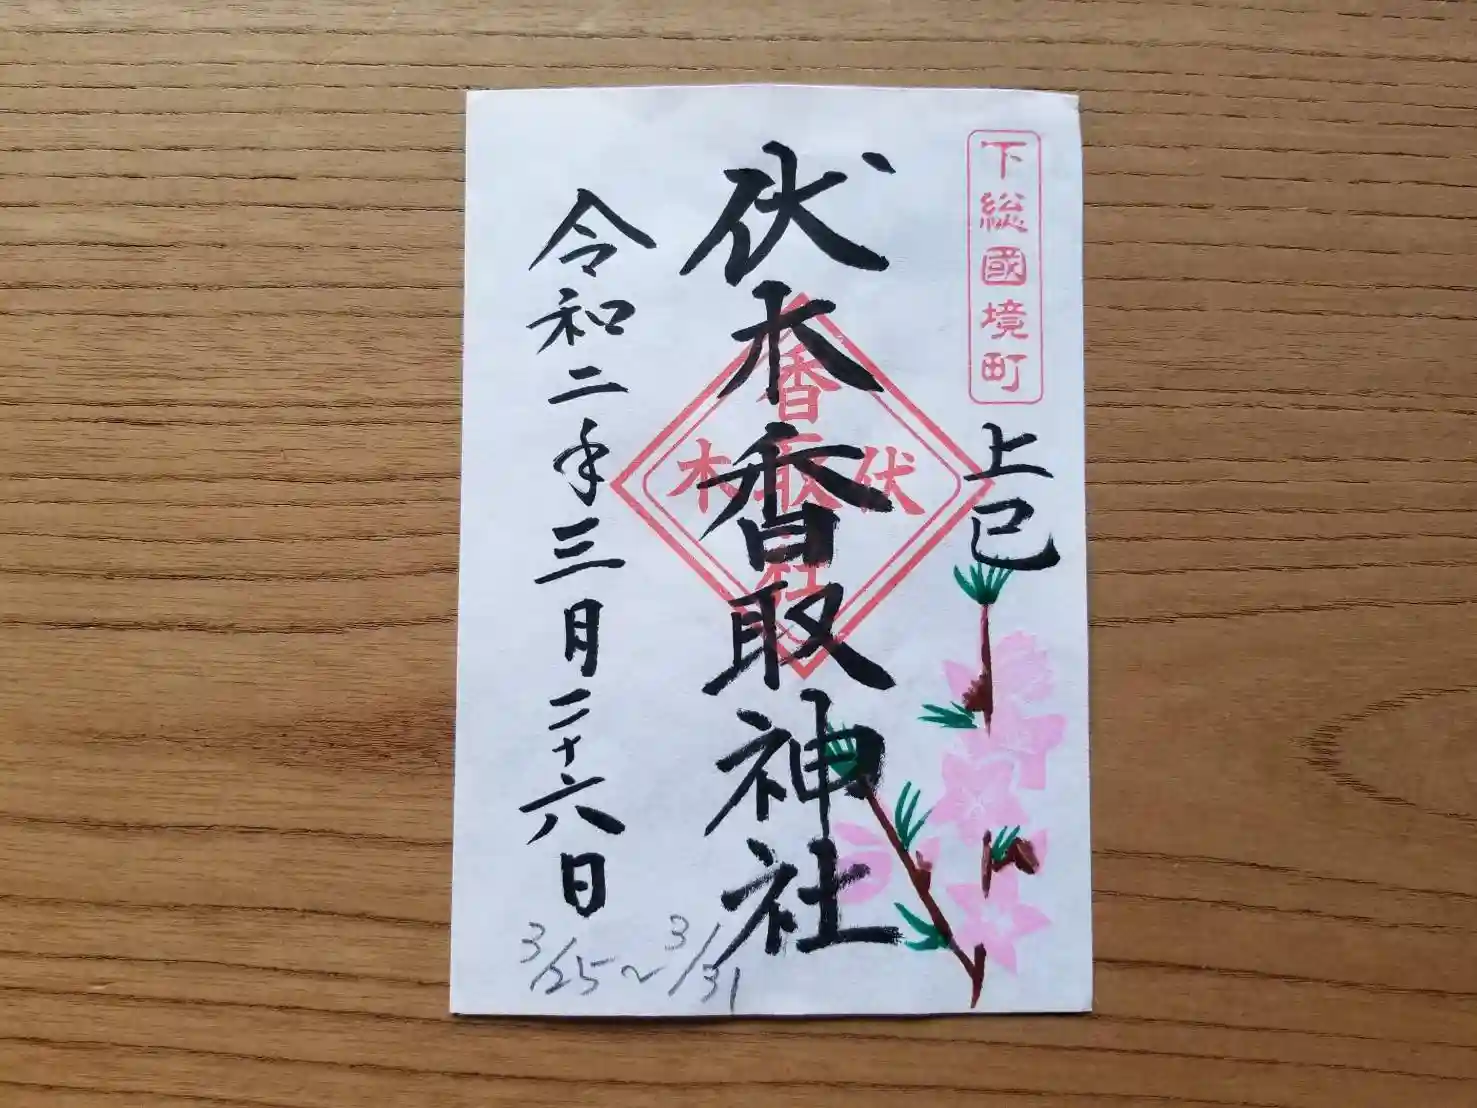 下総國境町
上巳
伏木香取神社
伏木
香取社
令和二年三月二十六日
3/25〜3/31